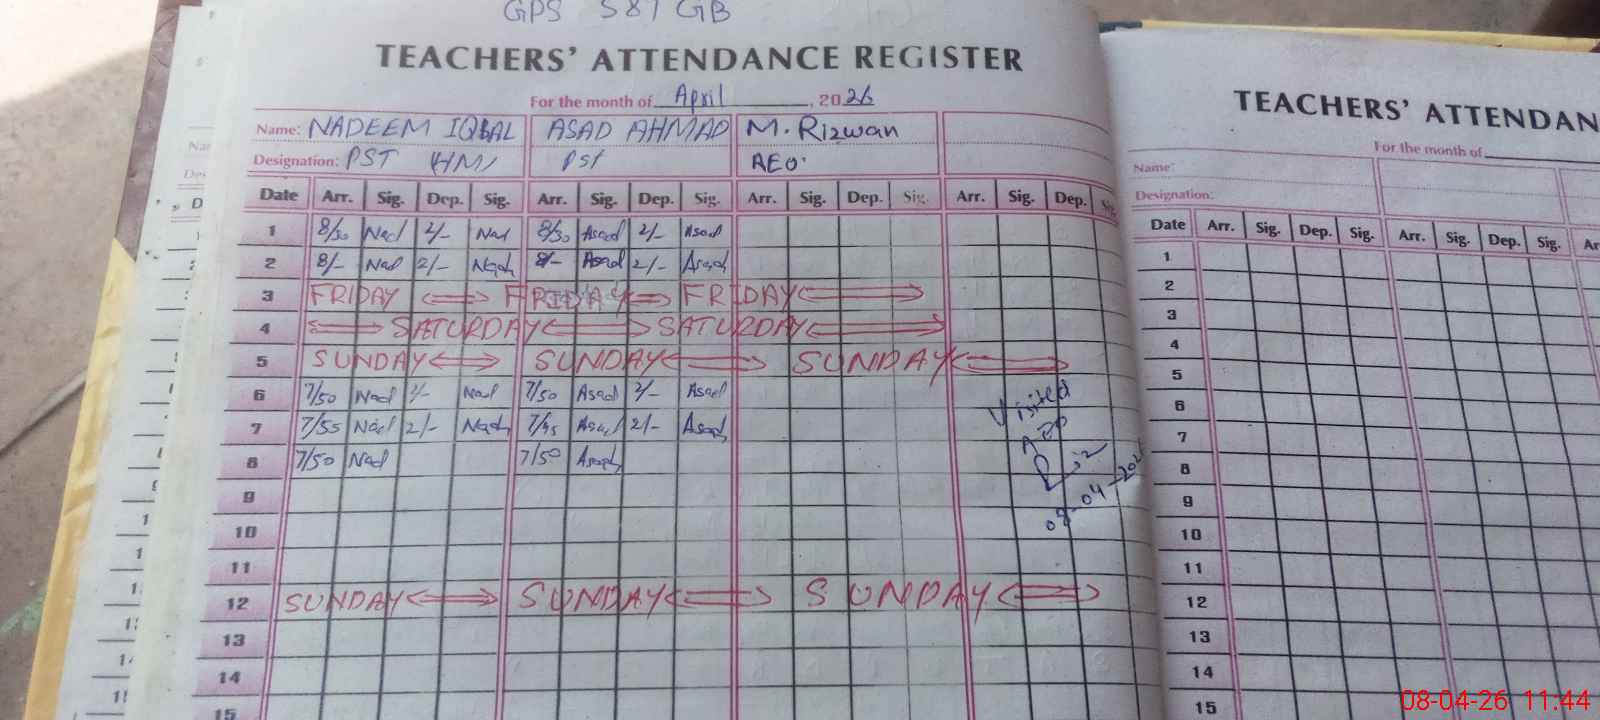 GPS 587 GB
TEACHERS' ATTENDANCE REGISTER
For the month of April, 2026
Name: NADEEM IQBAL ASAD AHMAD M. Rizwan
Designation: PST HM PST AEO
Date Arr. Sig. Dep. Sig. Arr. Sig. Dep. Sig. Arr. Sig. Dep. Sig. Arr. Sig. Dep. Sig.
1 8/30 Nad 2/- Nad 8/30 Asad 2/- Asad
2 8/- Nad 2/- Nad 8/- Asad 2/- Asad
3 FRIDAY FRIDAY FRIDAY
4 SATURDAY SATURDAY
5 SUNDAY SUNDAY SUNDAY
6 7/50 Nad 2/- Nad 7/50 Asad 2/- Asad
7 7/55 Nad 2/- Nad 7/45 Asad 2/- Asad
8 7/50 Nad 7/50 Asad
9
10
11
12 SUNDAY SUNDAY SUNDAY
13
14
15
Visited
AEO
08-04-202
TEACHERS' ATTENDAN
For the month of
Name:
Designation:
Date Arr. Sig. Dep. Sig. Arr. Sig. Dep. Sig. Ar
1
2
3
4
5
6
7
8
9
10
11
12
13
14
15
08-04-26 11:44